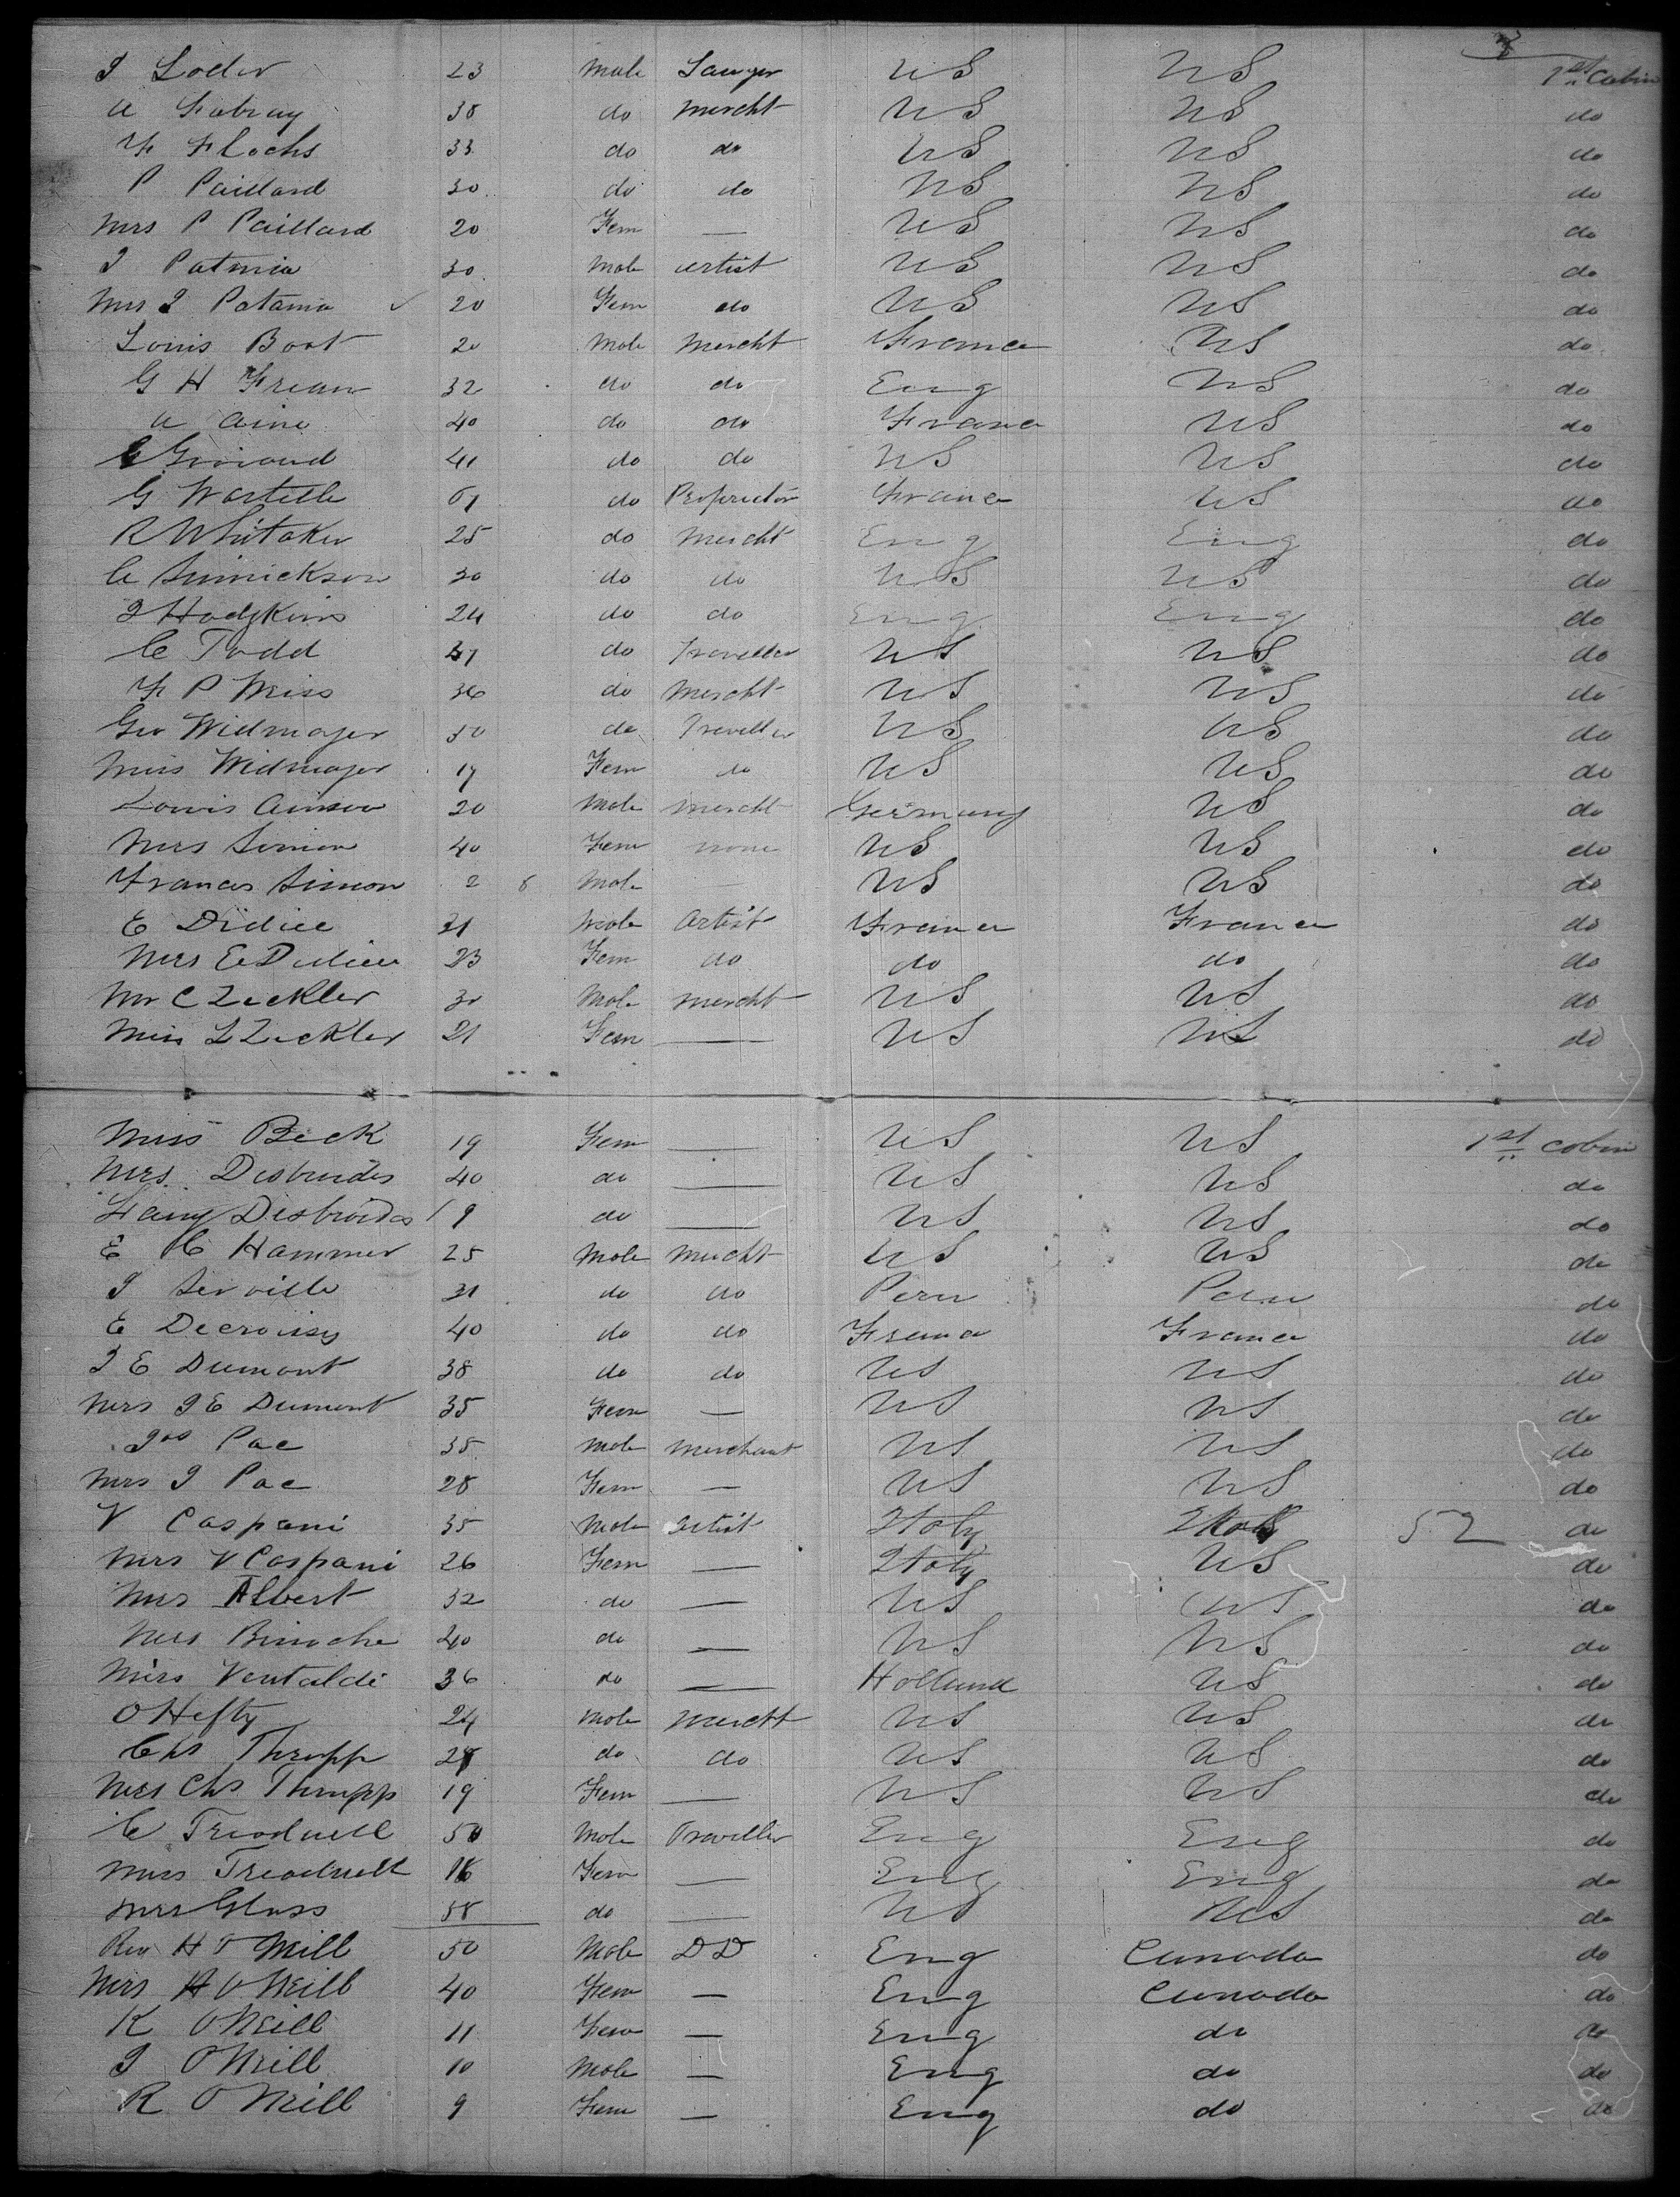 J Loder 23 Male Lawyer US US 1st Cabin
A Fabray 38 do mercht US US do
F Flochs 33 do do US US do
P Paillard 30 do do US US do
Mrs P Paillard 20 Fem — US US do
J Patmia 30 Male artist US US do
Mrs J Patamia 20 Fem do US US do
Louis Boot 20 Male Mercht France US do
G H Frean 32 do do Eng US do
A Aine 40 do do France US do
G Giraud 41 do do US US do
G Wartelle 61 do Proprietor France US do
R Whitaker 25 do Mercht Eng Eng do
C Sinnickson 30 do do US US do
J Hodgkins 24 do do Eng Eng do
C Todd do Traveller US US do
F P Weiss 36 do Mercht US US do
Geo Widmayer 50 do Traveller US US do
Miss Widmayer 17 Fem do US US do
Louis 20 Male mercht Germany US do
Mrs Simon 40 Fem none US US do
Frances Simon 2 Male — US US do
E Didiee 21 Male Artist France France do
Mrs E Didiee 23 Fem do do do do
Mr C Zeckler 30 Male mercht US US do
Miss L Zeckler 21 Fem — US US do
Miss Beck 19 Fem — US US 1st Cabin
Mrs Desbrides 40 do — US US do
Fany Desbrides 19 do — US US do
E C Hammer 25 Male Mercht US US do
J Serville 31 do do Peru Peru do
E Decroissy 40 do do France France do
J E Dumont 38 do do US US do
Mrs J E Dumont 35 Fem — US US do
Jos Pac 35 Male Merchant US US do
Mrs J Pac 28 Fem — US US do
V Caspani 35 Male artist Italy 52 do
Mrs V Caspani 26 Fem — Italy US do
Mrs Albert 32 do — US US do
Mrs Binoche 40 do — US US do
Miss Ventaldi 36 do — Holland US do
O Hefty 24 Male Mercht US US do
Chs Thrupp do do US US do
Mrs Chs Thrupp 19 Fem — US US do
C Treadwell 50 Male Traveller Eng Eng do
Miss Treadwell 16 Fem — Eng Eng do
Mrs Glass 58 do — US US do
Rev H O Neill 50 Male DD Eng Canada do
Mrs H O Neill 40 Fem — Eng Canada do
K O Neill 11 Fem — Eng do do
J O Neill 10 Male — Eng do do
R O Neill 9 Fem — Eng do do